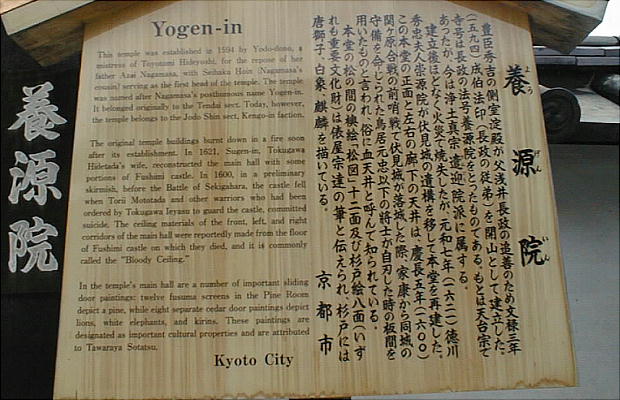 Yogen-in
This temple was established in 1594 by Yodo-dono, a
mistress of Toyotomi Hideyoshi, for the repose of her
father Azai Nagamasa, with Seihaku Hoin (Nagamasa's
cousin) serving as the first head of the temple. The temple
was named after Nagamasa's posthumous name Yogen-in.
It belonged originally to the Tendai sect. Today, however,
the temple belongs to the Jodo Shin sect, Kengo-in faction.
The original temple buildings burnt down in a fire soon
after its establishment. In 1621, Sugen-in, Tokugawa
Hidetada's wife, reconstructed the main hall with some
portions of Fushimi castle. In 1600, in a preliminary
skirmish, before the Battle of Sekigahara, the castle fell
when Torii Mototada and other warriors who had been
ordered by Tokugawa Ieyasu to guard the castle, committed
suicide. The ceiling materials of the front, left, and right
corridors of the main hall were reportedly made from the floor
of Fushimi castle on which they died, and it is commonly
called the "Bloody Ceiling."
In the temple's main hall are a number of important sliding
door paintings: twelve fusuma screens in the Pine Room
depict a pine, while eight separate cedar door paintings depict
lions, white elephants, and kirins. These paintings are
designated as important cultural properties and are attributed
to Tawaraya Sotatsu.
Kyoto City
養源院
よう げん いん
豊臣秀吉の側室淀殿が父浅井長政の追善のため文禄三年
(一五九四)成伯法印(長政の従弟)を開山として建立した。
寺号は長政の法号養源院をとったものである。もとは天台宗で
あったが、今は浄土真宗遣迎院派に属する。
建立後ほどなく火災で焼失したが、元和七年(一六二一)徳川
秀忠夫人崇源院が伏見城の遺構を移して本堂を再建した。
この本堂の正面と左右の廊下の天井は、慶長五年(一六〇〇)
関ヶ原合戦の前哨戦で伏見城が落城した際、家康から同城の
守備を命じられた鳥居元忠以下の将士が自刃した時の板間を
用いたものと言われ、俗に血天井と呼んで知られている。
本堂の松の間の襖絵「松図」十二面及び杉戸絵八面(いず
れも重要文化財)は俵屋宗達の筆と伝えられ、杉戸には
唐獅子、白象、麒麟を描いている。
京都市
養源院